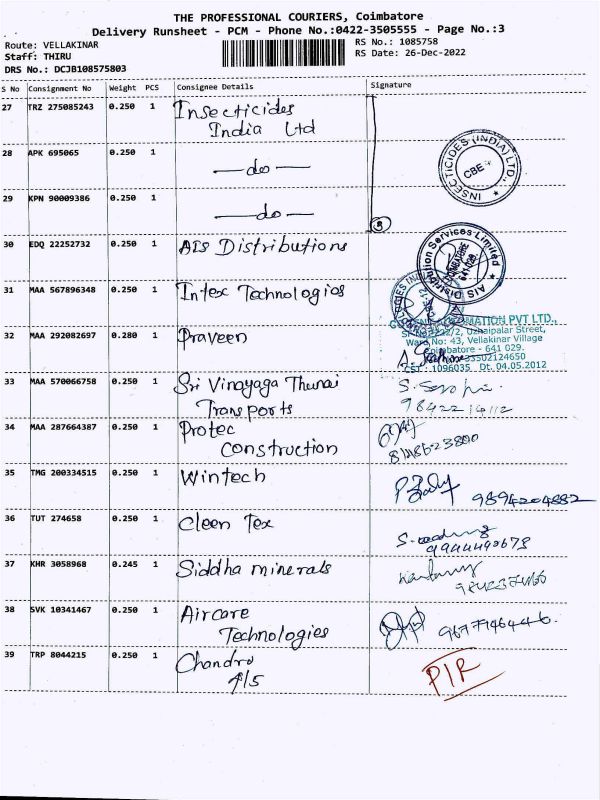 THE PROFESSIONAL COURIERS, Coimbatore
Delivery Runsheet - PCM - Phone No.:0422-3505555 - Page No.:3
Route: VELLAKINAR
Staff: THIRU
DRS No.: DCJB108575803
RS No.: 1085758
RS Date: 26-Dec-2022
S No Consignment No Weight PCS Consignee Details Signature
27 TRZ 275085243 0.250 1 Insecticides
India Ltd
28 APK 695065 0.250 1 —do—
INSECTICIDES (INDIA) LTD.,
CBE
29 KPN 90009386 0.250 1 —do—
30 EDQ 22252732 0.250 1 AIS Distributions
AIS Distribution Services Limited
COIMBATORE
641 029
31 MAA 567896348 0.250 1 Intex Technologies
32 MAA 292082697 0.280 1 Praveen
MATION PVT LTD.,
/2, Uzhaipalar Street,
Ward No: 43, Vellakinar Village
Coimbatore - 641 029.
33502124650
CST : 1096035 Dt. 04.05.2012
33 MAA 570066758 0.250 1 Sri Vinayaga Thunai
Transports
34 MAA 287664387 0.250 1 Protec
construction
35 TMG 200334515 0.250 1 Wintech
9894204882
36 TUT 274658 0.250 1 Cleen Tex
37 KHR 3058968 0.245 1 Siddha minerals
38 SVK 10341467 0.250 1 Aircare
Technologies
9677146446.
39 TRP 8044215 0.250 1 Chandra
4/5
PIR